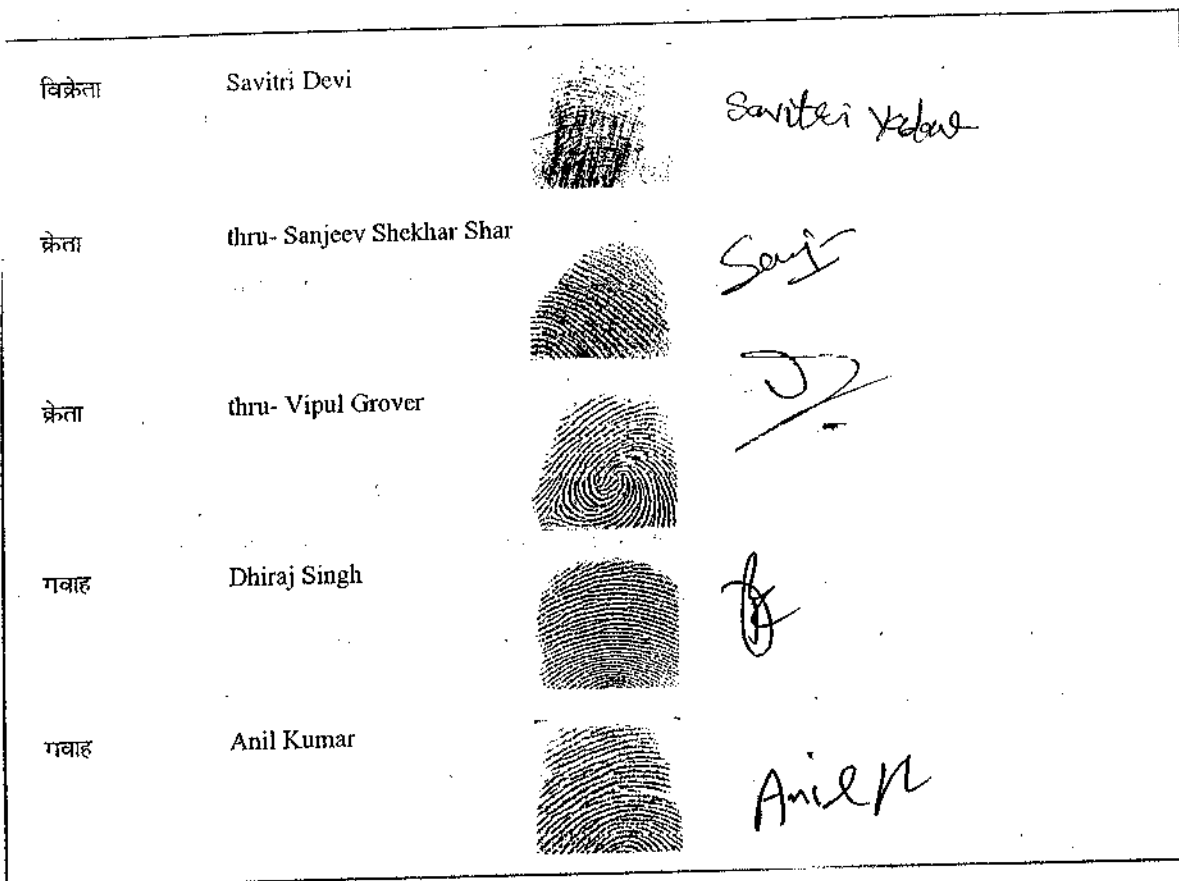 विक्रेता Savitri Devi Savitri Yadav
क्रेता thru- Sanjeev Shekhar Shar Sanj
क्रेता thru- Vipul Grover
गवाह Dhiraj Singh
गवाह Anil Kumar Anil K